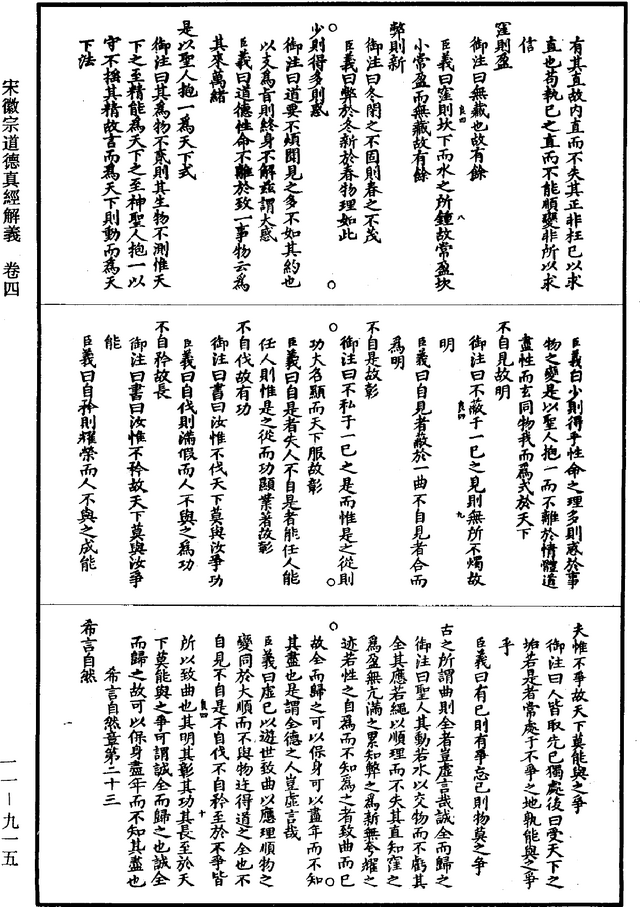 有其直故内直而不失其正非枉己以求
直也苟執己之直而不能順變非所以求
信
窪則盈
御注曰無藏也故有餘
臣義曰窪則坎下而水之所鍾故常盈坎
小常盈而無藏故有餘
弊則新
御注曰冬閉之不固則春之不茂
臣義曰弊於冬新於春物理如此
少則得多則惑
御注曰道要不煩聞見之多不如其約也
以支為旨則終身不解茲謂大惑
臣義曰道德性命不離於致一事物云為
其來萬緒
是以聖人抱一為天下式
御注曰其為物不貳則其生物不測惟天
下之至精能為天下之至神聖人抱一以
守不搖其精故言而為天下則動而為天
下法
臣義曰少則得乎性命之理多則惑於事
物之變是以聖人抱一而不離於情體道
盡性而玄同物我而爲式於天下
不自見故明
御注曰不蔽于一己之見則無所不燭故
明
臣義曰自見者蔽於一曲不自見者合而
爲明
不自是故彰
御注曰不私于一己之是而惟是之從則
功大名顯而天下服故彰
臣義曰自是者失人不自是者能任人能
任人則惟是之從而功顯業著故彰
不自伐故有功
御注曰書曰汝惟不伐天下莫與汝爭功
臣義曰自伐則滿假而人不與之爲功
不自矜故長
御注曰書曰汝惟不矜故天下莫與汝爭
能
臣義曰自矜則耀榮而人不與之成能
夫惟不爭故天下莫能與之爭
御注曰人皆取先己獨處後曰受天下之
垢若是者常處于不爭之地孰能與之爭
乎
臣義曰有己則有爭忘己則物莫之爭
古之所謂曲則全者豈虛言哉誠全而歸之
御注曰聖人其動若水以交物而不虧其
全其應若繩以順理而不失其直知窪之
爲盈無亢滿之累知弊之爲新無夸耀之
迹若性之自爲而不知爲之者致曲而已
故全而歸之可以保身可以盡年而不知
其盡也是謂全德之人豈虛言哉
臣義曰虛己以遊世致曲以應理順物之
變同於大順而不與物迕得道之全也不
自見不自是不自伐不自矜至於不爭皆
所以致曲也其明其彰其功其長至於天
下莫能與之爭可謂誠全而歸之也誠全
而歸之故可以保身盡年而不知其盡也
希言自然章第二十三
希言自然
宋徽宗道德真經解義　卷四
一一－九一五